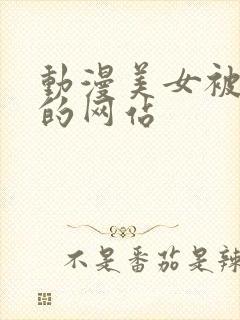 動漫美女被
的网站
不是番茄是辣